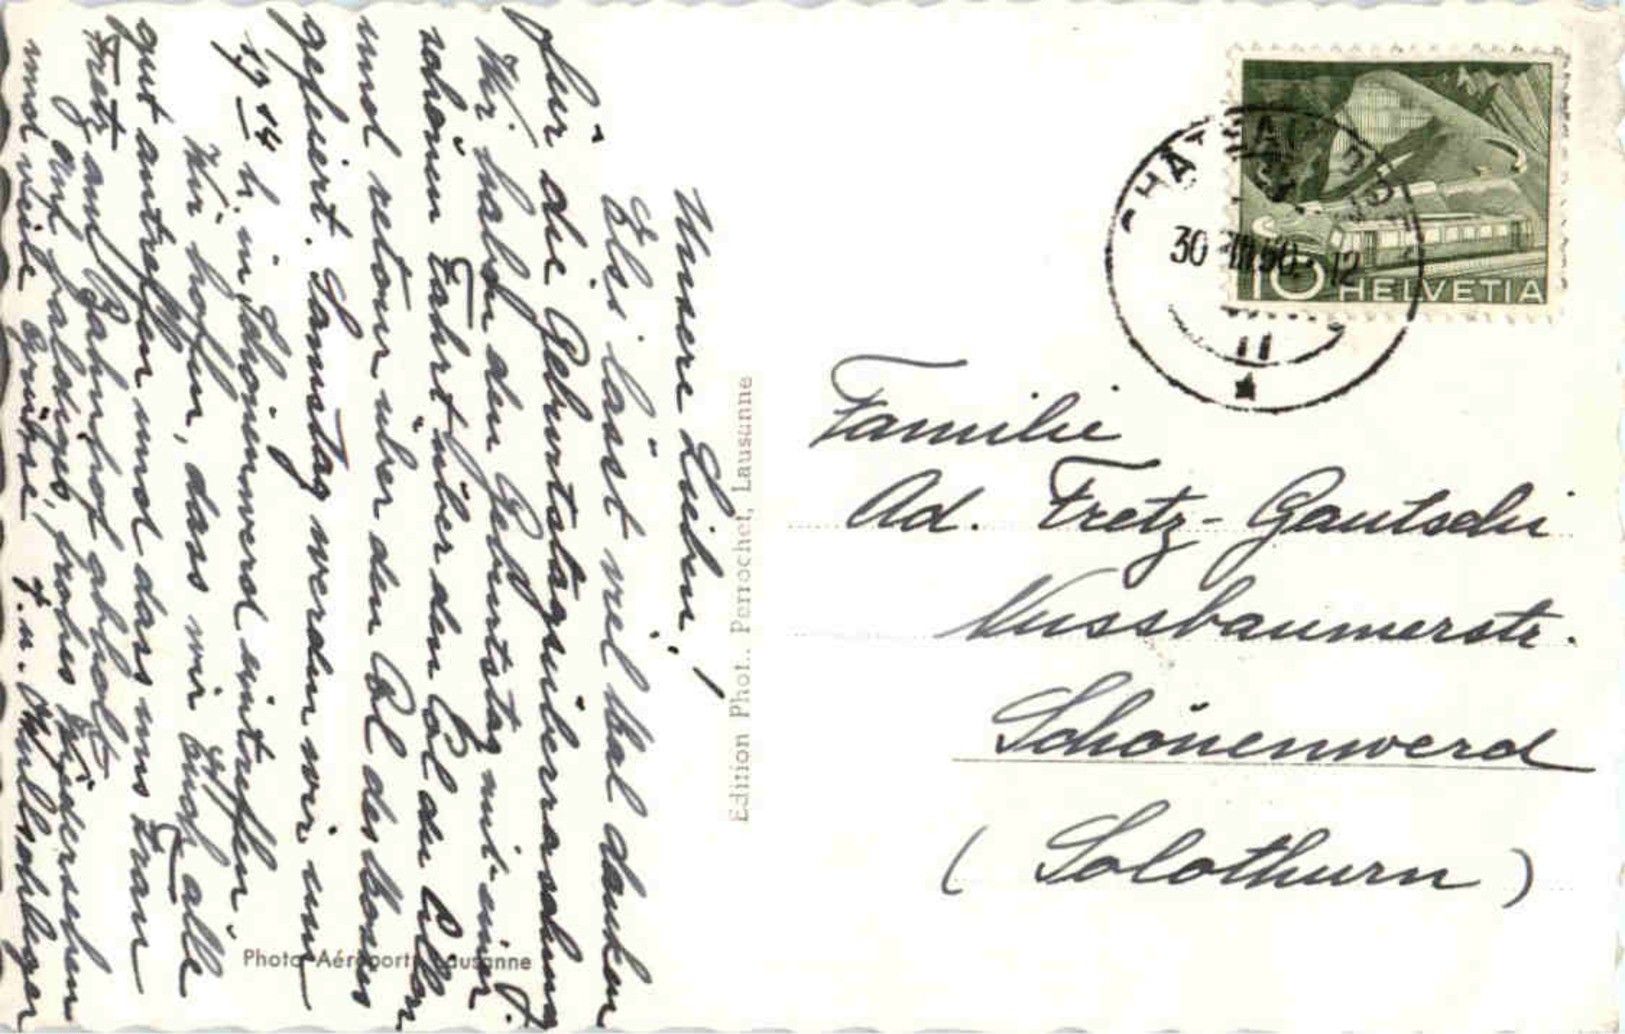 Unsere Lieben!
Elsi lässt viel Mal danken
für die Geburtstagsüberraschung
Wir haben den Geburtstag mit einer
schönen Fahrt über den Col du Pillon
und retour über den Col des Mosses
gefeiert. Samstag werden wir um
17 14 h. in Schönenwerd eintreffen.
Wir hoffen, dass wir Euch alle
gut antreffen und dass uns Frau
Fretz am Bahnhof abholt
Auf baldiges, frohes Wiedersehen
und viele Grüsse
Edition Phot. Perrochet, Lausanne
Photo-Aéroport Lausanne
30 VIII 50 - 12
II
10 HELVETIA
Familie
Ad. Fretz-Gautschi
Nussbaumerstr.
Schönenwerd
(Solothurn)